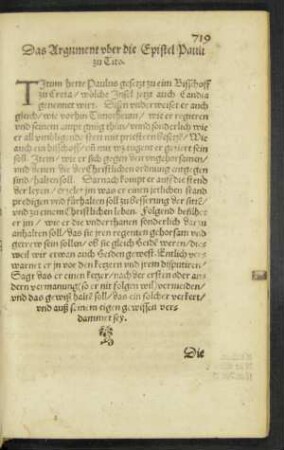 719
Das Argument vber die Epistel Pauli
zu Tito.
TItum hette Paulus gesetzt zu eim Bisschoff
zu Creta / wölche Insel jetzt auch Candia
genennet wirt. Disen vnderweiset er auch
gleich / wie vorhin Timotheum / wie er regieren
vnd seinem ampt gnug thun / vnnd sonderlich wie
er all vmbligende stett mit priestern besetz / Wie
auch ein bisschoff / vnd mit wz tugent er geziert sein
soll. Item / wie er sich gegen den vngehorsamen /
vnd denen die der Christlichen ordnung entgegen
sind / halten soll. Darnach kompt er auff die stend
der leyen / erzelet jm was er einem jetlichen stand
predigen vnd fürhalten soll zu besserung der sitte /
vnd zu einem Christlichen leben. Folgend befilhet
er jm / wie er die vnderthanen sonderlich dar zu
anhalten soll / das sie jren regenten gehorsam vnd
getrew sein sollen / ob sie gleich Heide weren / dies
weil wir etwan auch Heiden gewest. Entlich vers
warnet er jn vor den ketzern vnd jrem disputieren /
Sagt das er einen ketzer / nach der ersten oder an
dern vermanung / so er nit folgen wil / vermeiden /
vnd das gewiß halten soll / das ein solcher verkert /
vnd auß seinem eigen gewissen vers
dammet sey.
Die